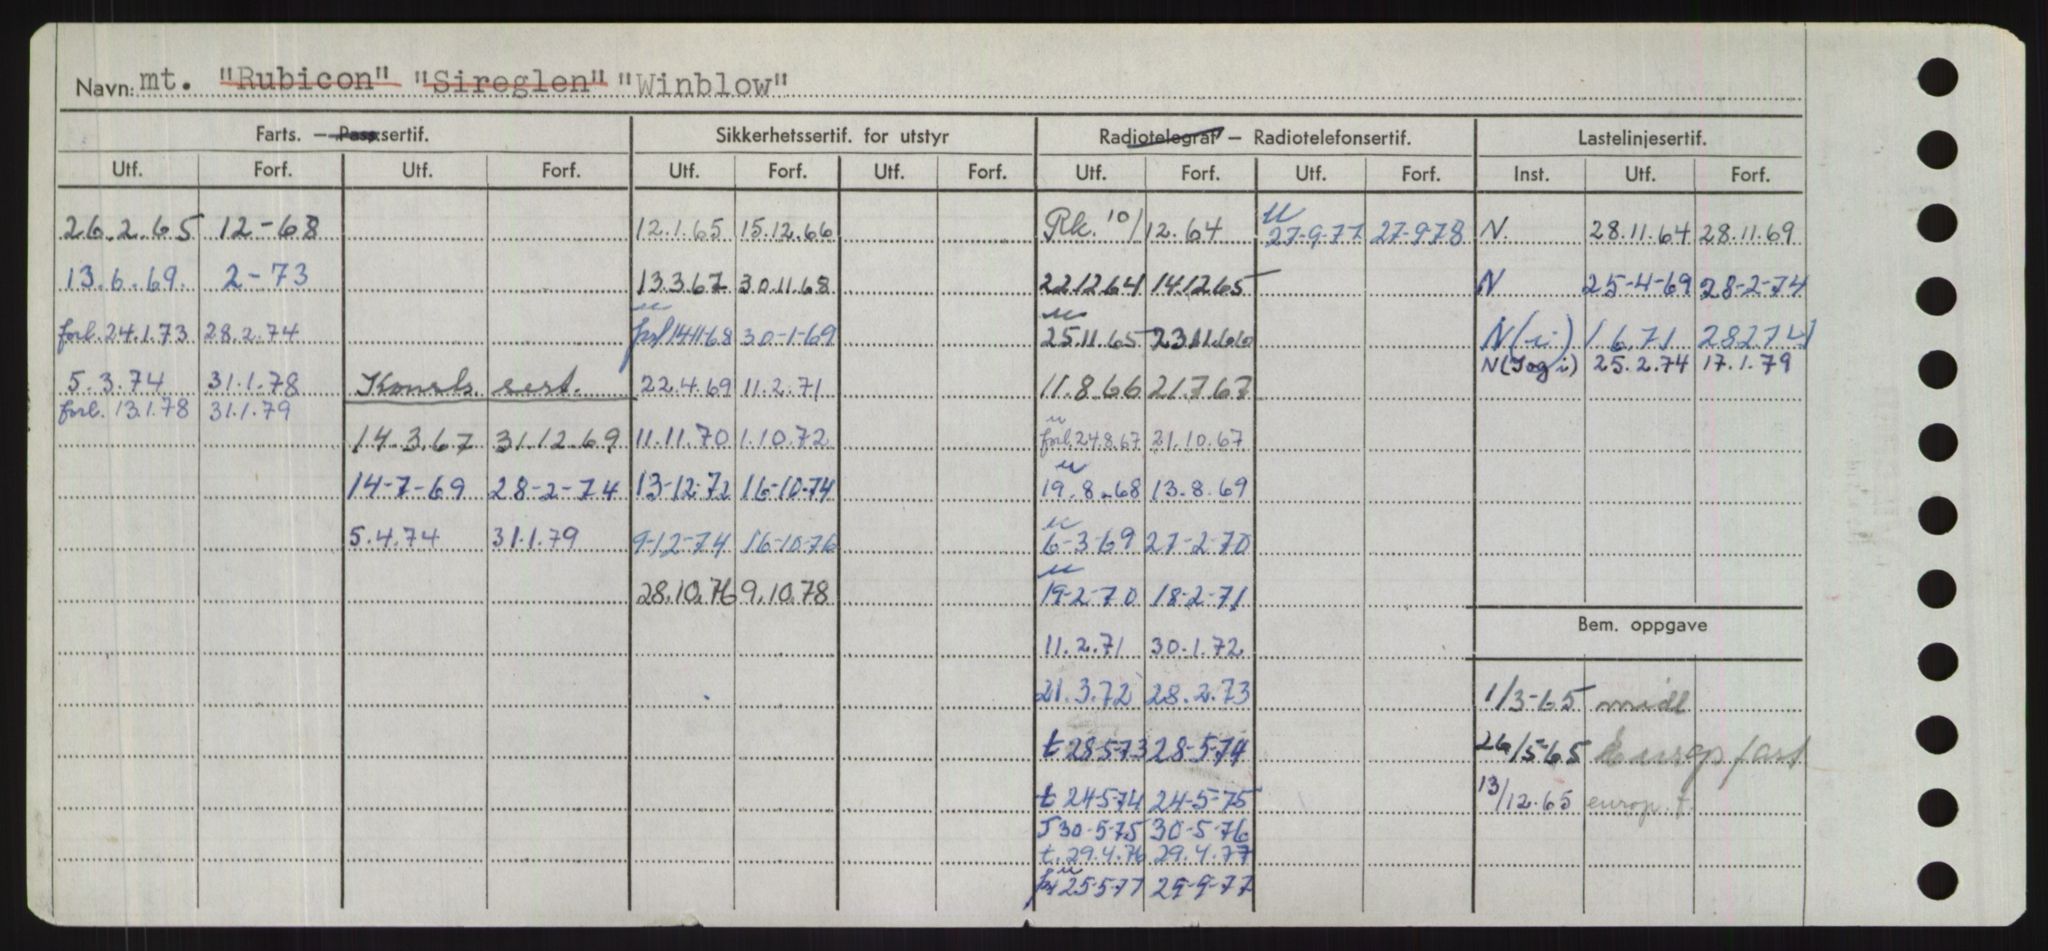 Navn: mt. "Rubicon" "Sireglen" "Winblow"
Farts. — Passsertif. Sikkerhetssertif. for utstyr Radiotelegraf — Radiotelefonsertif. Lastelinjesertif.
Utf. Forf. Utf. Forf. Utf. Forf. Utf. Forf. Utf. Forf. Utf. Forf. Inst. Utf. Forf.
26.2.65 12-68 12.1.65 15.12.66 Rk. 10/12.64 u 27-9-77 27-9-78 N. 28.11.64 28.11.69
13.6.69. 2-73 13.3.67 30.11.68 22.12.64 14.12.65 N 25-4-69 28-2-74
forl. 24.1.73 28.2.74 u forl 14-11-68 30-1-69 u 25.11.65 23.11.66 N(-i) 1.6.71 28.2.74
5.3.74 31.1.78 Konstr. sert. 22.4.69 11.2.71 11.8.66 21.7.67 N(I og i) 25.2.74 17.1.79
forl. 13.1.78 31.1.79
14.3.67 31.12.69 11.11.70 1.10.72 u forl. 24.8.67 21.10.67
14-7-69 28-2-74 13-12-72 16-10-74 u 19.8.68 13.8.69
5.4.74 31.1.79 9-12-74 16-10-76 u 6-3-69 27-2-70
28.10.76 9.10.78 u 19-2-70 18-2-71
Bem. oppgave
11.2.71 30.1.72
21.3.72 28.2.73 1/3-65 midl
t 28-5-73 28-5-74 26/5-65 Europ fart
t 24-5-74 24-5-75 13/12.65 europ. f.
T 30-5-75 30-5-76
t. 29.4.76 29.4.77
u 25-5-77 29-9-77